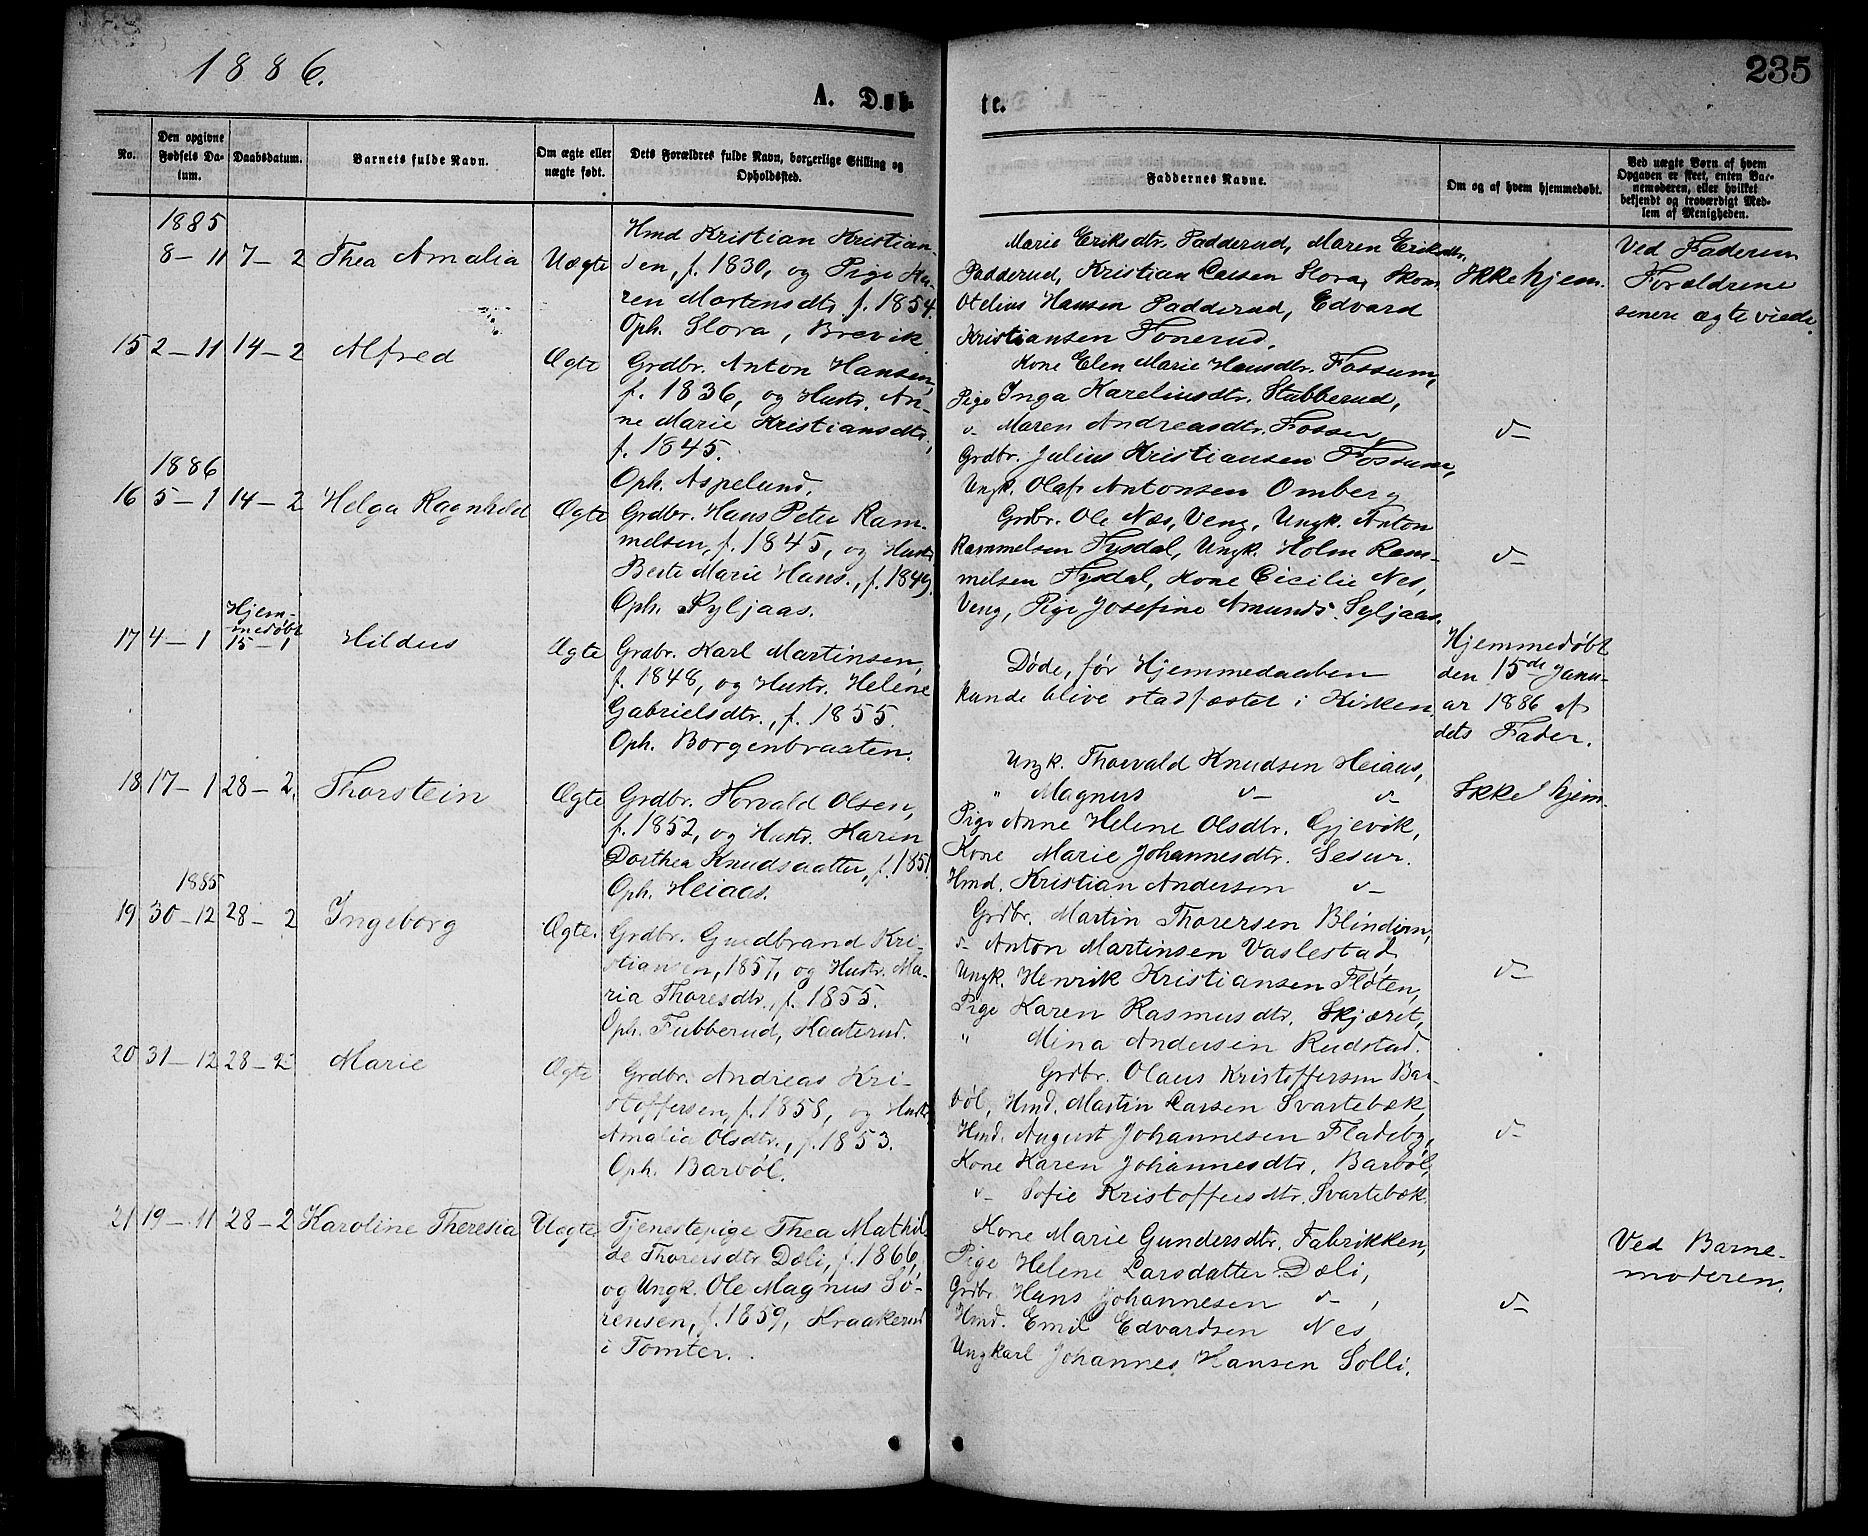 1886.
235
A. Døb-
te.
No.
Den opgivne Fødsels Da-tum.
Daabsdatum.
Barnets fulde Navn.
Om ægte eller uægte født.
Dets Forældres fulde Navn, borgerlige Stilling og Opholdssted.
Faddernes Navne.
Om og af hvem hjemmedøbt.
Ved uægte Børn af hvem Opgaven er skeet, enten Bar-nemoderen, eller hvilket bekjendt og troværdigt Med-lem af Menigheden.
1885
8-11 7-2 Thea Amalia Uægte
Hmd Kristian Kristian-
sen, f. 1830, og Pige Ka-
ren Martensdtr. f. 1854.
Oph. Slora, Brevik
Marie Eriksdtr. Padderud, Maren Eriksdtr.
Padderud, Kristian Larsen Slora, Skom.
Otelius Hansen Padderud, Edvard
Kristiansen Fonerud.
Ikke hjem.
Ved Faderen
Forældrene
senere ægteviede.
15 2-11 14-2 Alfred Ægte
Grdbr. Anton Hansen,
f. 1836, og Hustr. An-
ne Marie Kristiansdtr.,
f. 1845.
Oph. Aspelund.
Kone Elen Marie Hansdtr. Fossum,
Pige Inga Karelinsdtr. Stubberud,
v- Maren Andreasdtr. Fosser,
Grdbr. Julius Kristiansen Fossum,
Ungk. Olaf Antonsen Omberg
v-
1886
16 5-1 14-2 Helga Ragnhild Ægte
Grdbr. Hans Peter Ram-
melsen, f. 1845, og Hustr.
Berte Marie Hans., f. 1849.
Oph. Syljaas.
Grdbr. Ole Næs, Veng, Ungk. Anton
Rammelsen Tysdal, Ungk. Holm Ram-
melsen Tysdal, Kone Cicilie Nes,
Veng, Pige Josefine Amunds. Syljaas.
v-
17 4-1 Hjem-
medøbt
15-1 Hildus Ægte
Grdbr. Karl Martinsen,
f. 1848, og Hustr. Helene
Gabrielsdtr., f. 1855.
Oph. Borgenbraaten.
Døde, før Hjemmedaaben
kunde blive stadfæstet i Kirken.
Hjemmedøbt
den 15de Janu-
ar 1886 af
dets Fader.
18 17-1 28-2. Thorstein Ægte
Grdbr. Horvald Olsen,
f. 1852, og Hustr. Karen
Dorthea Knudsdatter, f. 1851.
Oph. Heiaas.
Ungk. Thorvald Knudsen Heiaas,
" Magnus v- v-
Pige Anne Helene Olsdtr. Gjevik,
Kone Marie Johannesdtr. Sesur.
Hmd. Kristian Andersen v-
Ikke hjem.
1885
19 30-12 28-2 Ingeborg Ægte.
Grdbr. Gudbrand Kri-
stiansen, 1857, og Hustr. Ma-
ria Thoresdtr., f. 1855.
Oph. Fubberud, Kaaterud.
Grdbr. Martin Thorersen Blindern,
v- Anton Martinsen Vaslestad,
Ungk. Henrik Kristiansen Fløten,
Pige Karen Rasmusdtr. Skjæret,
" Mina Andersen Rudstad.
v-
20 31-12 28-2 Marie Ægte
Grdbr. Andreas Kri-
stoffersen, f. 1858, og Hustr.
Amalia Olsdtr., f. 1853.
Oph. Barbøl.
Grdbr. Olaus Kristoffersen Bar-
bøl, Hmd. Martin Larsen Svartebæk,
Hmd. August Johannesen Fladeby,
Kone Karen Johannesdtr. Barbøl,
v- Sofie Kristoffersdtr. Svartebæk.
v-
21 19-11 28-2 Karoline Theresia Uægte
Tjenestepige Thea Mathil-
de Thorersdtr. Dæli, f. 1866,
og Ungk. Ole Magnus Sø-
rensen, f. 1859, Kraakerud
i Tomter.
Kone Marie Gundersdtr. Fabrikken,
Pige Helene Larsdatter Dæli,
Grdbr. Hans Johannesen v-,
Hmd. Emil Edvardsen Nes,
Ungkarl Johannes Hansen Solli.
v-
Ved Barne-
moderen.